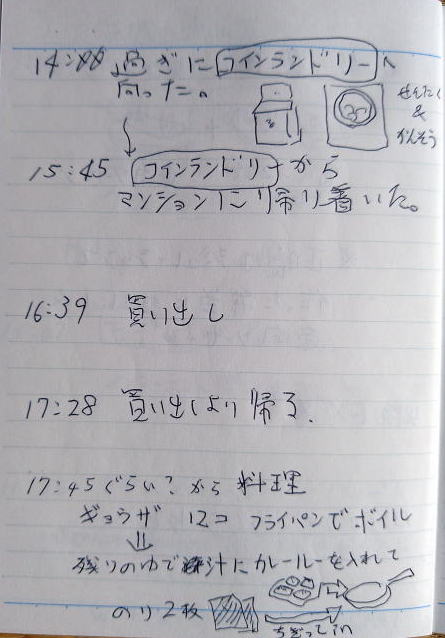 14:00 過ぎにコインランドリーへ
向った。
せんたく
&
かんそう
15:45 コインランドリーから
マンションに帰り着いた。
16:39 買い出し
17:28 買い出しより帰る.
17:45ぐらい?から 料理
ギョウザ 12コ フライパンでボイル
残りのゆで汁にカレールーを入れて
のり2枚 ちぎってin